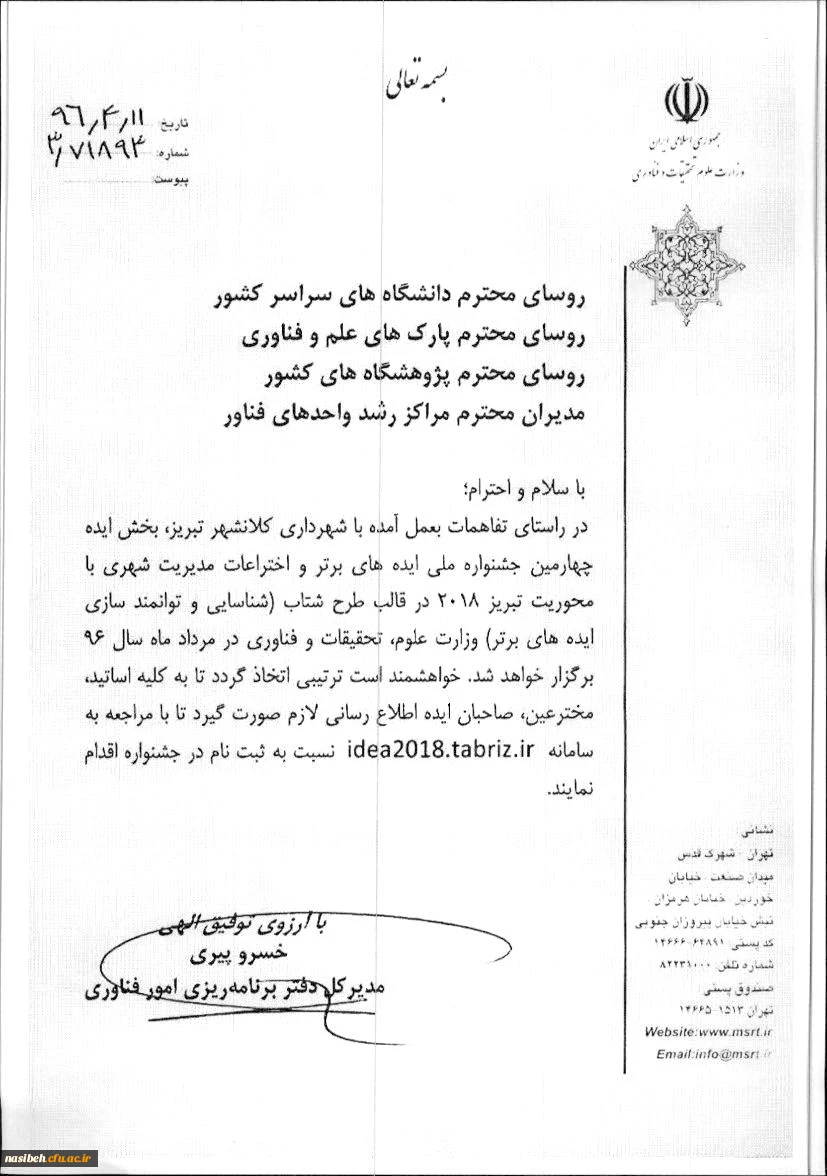 بسمه تعالی
جمهوری اسلامی ایران
وزارت علوم تحقیقات و فناوری
تاریخ: ۹۶٫۴٫۱۱
شماره: ۳٫۷۱۸۹۴
پیوست:
روسای محترم دانشگاه های سراسر کشور
روسای محترم پارک های علم و فناوری
روسای محترم پژوهشگاه های کشور
مدیران محترم مراکز رشد واحدهای فناور
با سلام و احترام؛
در راستای تفاهمات بعمل آمده با شهرداری کلانشهر تبریز، بخش ایده
چهارمین جشنواره ملی ایده های برتر و اختراعات مدیریت شهری با
محوریت تبریز ۲۰۱۸ در قالب طرح شتاب (شناسایی و توانمند سازی
ایده های برتر) وزارت علوم، تحقیقات و فناوری در مرداد ماه سال ۹۶
برگزار خواهد شد. خواهشمند است ترتیبی اتخاذ گردد تا به کلیه اساتید،
مخترعین، صاحبان ایده اطلاع رسانی لازم صورت گیرد تا با مراجعه به
سامانه idea2018.tabriz.ir نسبت به ثبت نام در جشنواره اقدام
نمایند.
با آرزوی توفیق الهی
خسرو پیری
مدیرکل دفتر برنامه‌ریزی امور فناوری
نشانی:
تهران - شهرک قدس
میدان صنعت - خیابان
خوردین - خیابان هرمزان
نبش خیابان پیروزان جنوبی
کد پستی: ۶۴۸۹۱-۱۴۶۶۶
شماره تلفن: ۸۲۲۳۱۰۰۰
صندوق پستی:
تهران ۱۵۱۳-۱۴۶۶۵
Website:www.msrt.ir
Email:info@msrt.ir
nasibeh.cfu.ac.ir